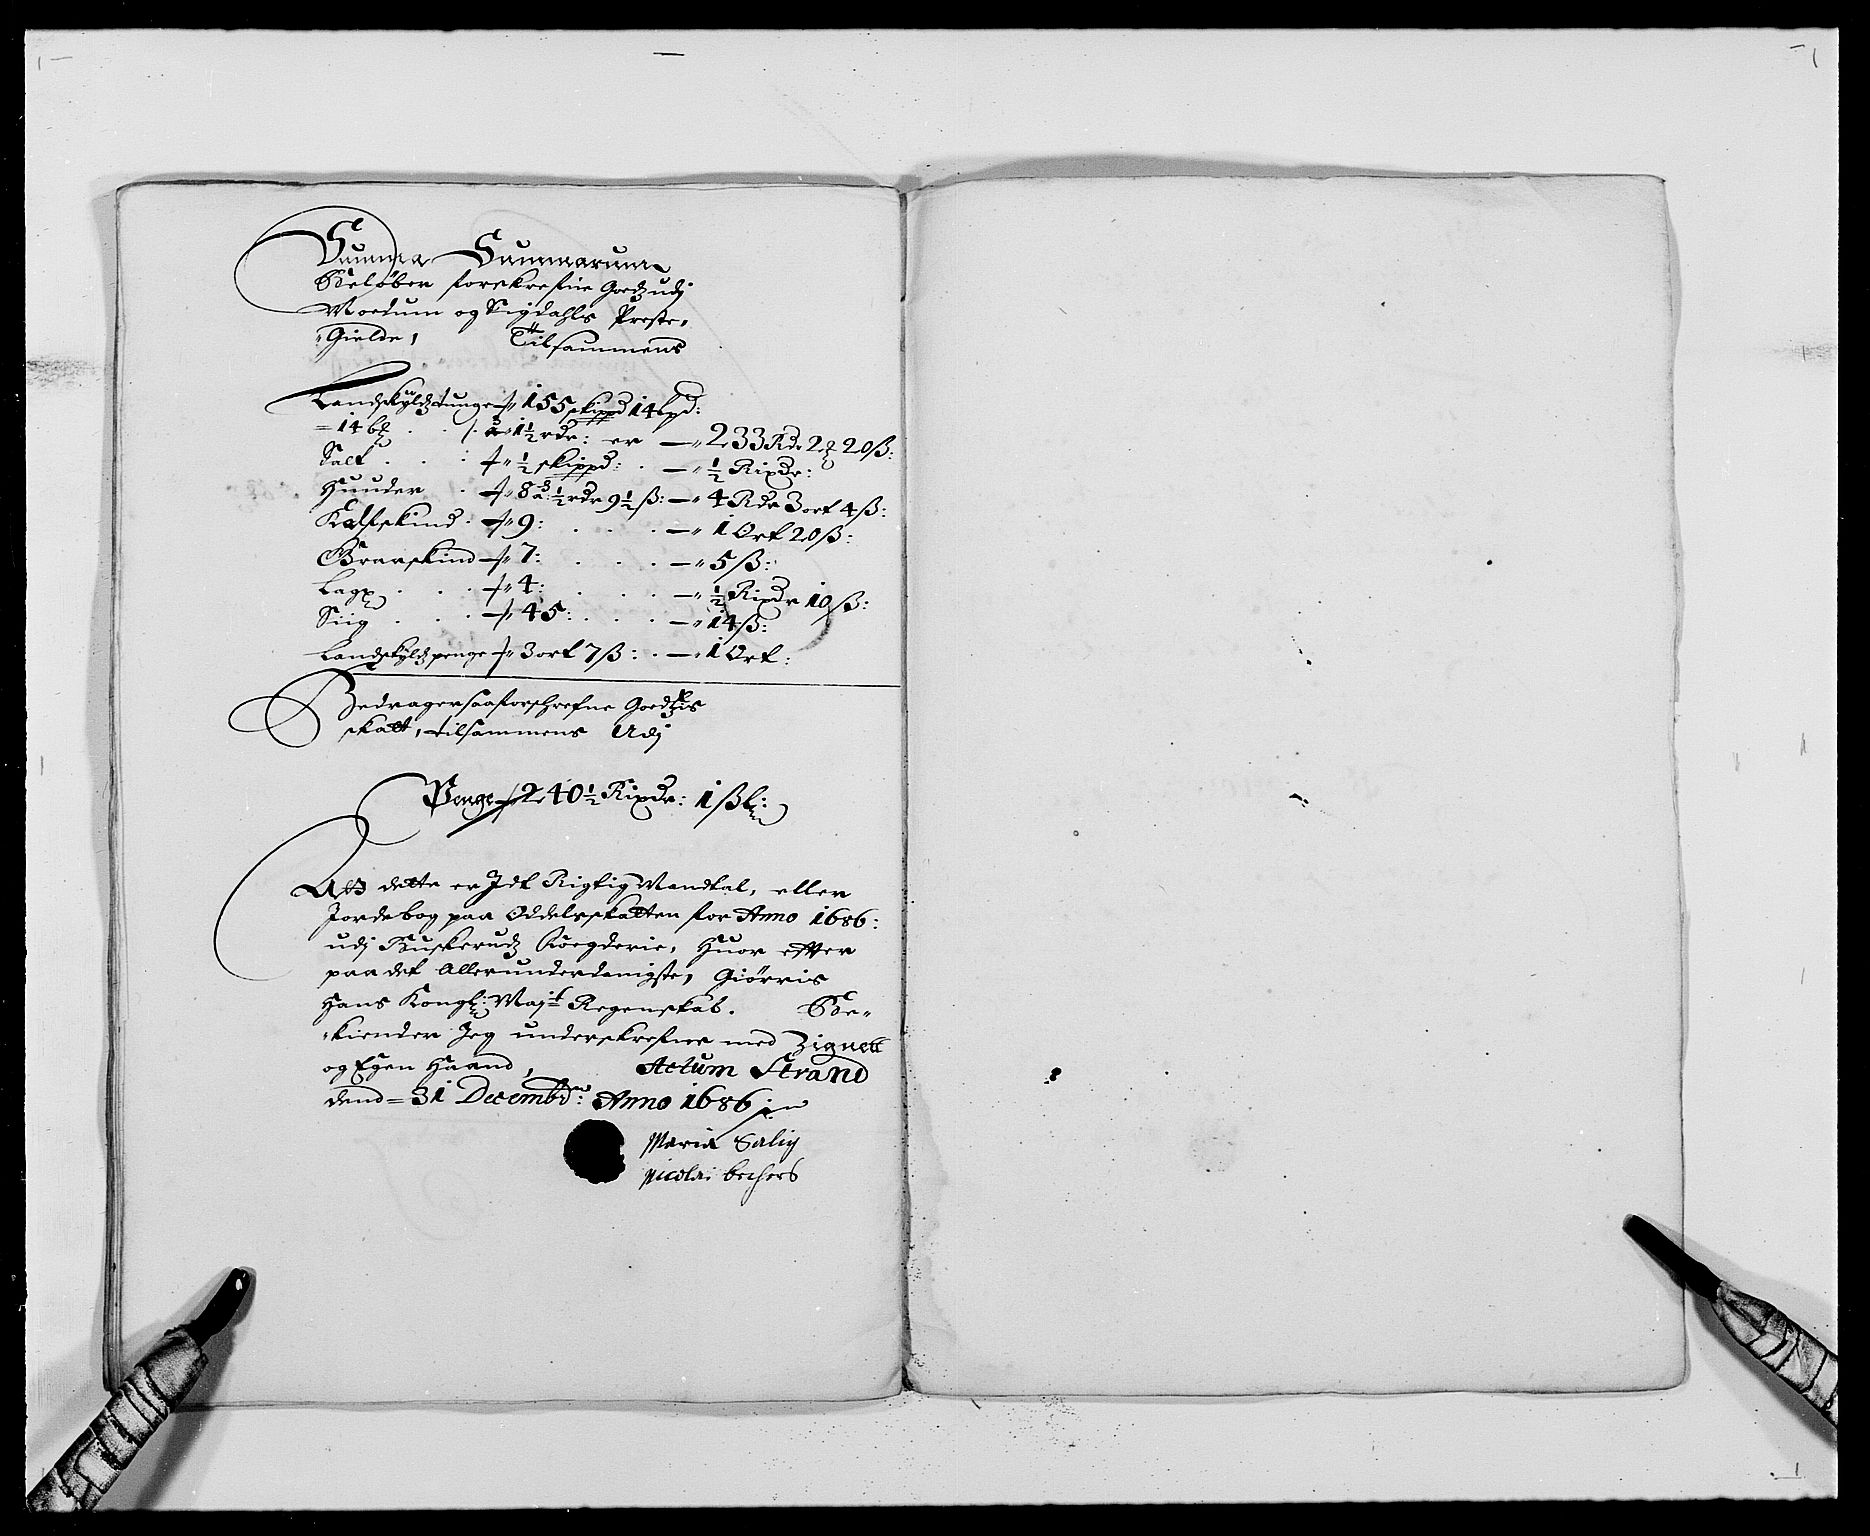 Summa Summarum
Beløber forskrefne Goedz udj
Modum og Sigdahls Preste-
Gielde, Tilsammens
Landskyldz tunge - 155 skippd 14 lpd:
= 14 b . . . a 1½ rdr: er — 233 Rdr 2 20 ß:
Salt . . . ½ skippd: . — ½ Rixdr:
Huuder . 8 a: ½ rdr 9½ ß: — 4 Rdr 3 ort 4 ß:
Kalfskind . 9: . . . — 1 Ort 20 ß:
Graaskind 7: . . . — 5 ß:
Lax . . . 4: . . . — ½ Rixdr 10 ß:
Siig . . . 45: . . . — 14 ß:
Landskyldz penge 3 ort 7 ß: . — 1 Ort:
Bedrager saa forschrefne Goedzis
skatt, tilsammens Udj
Penge 240½ Rixdr: 1 ßl:
Att dette er Idt Rigtig Mandtal, eller
Jordebog paa Oddelsskatten for Anno 1686:
udj Buskerudz Foegderie, Huor efter
paa det Allerunderdanigste, Giørris
Hans Kongl: Maj:t Regenskab. Be-
kiender Jeg underskrefne med Zignett
og Egen Haand, Actum Strand
dend = 31 Decembr: Anno 1686
Maria Salig
Nicolai bechers